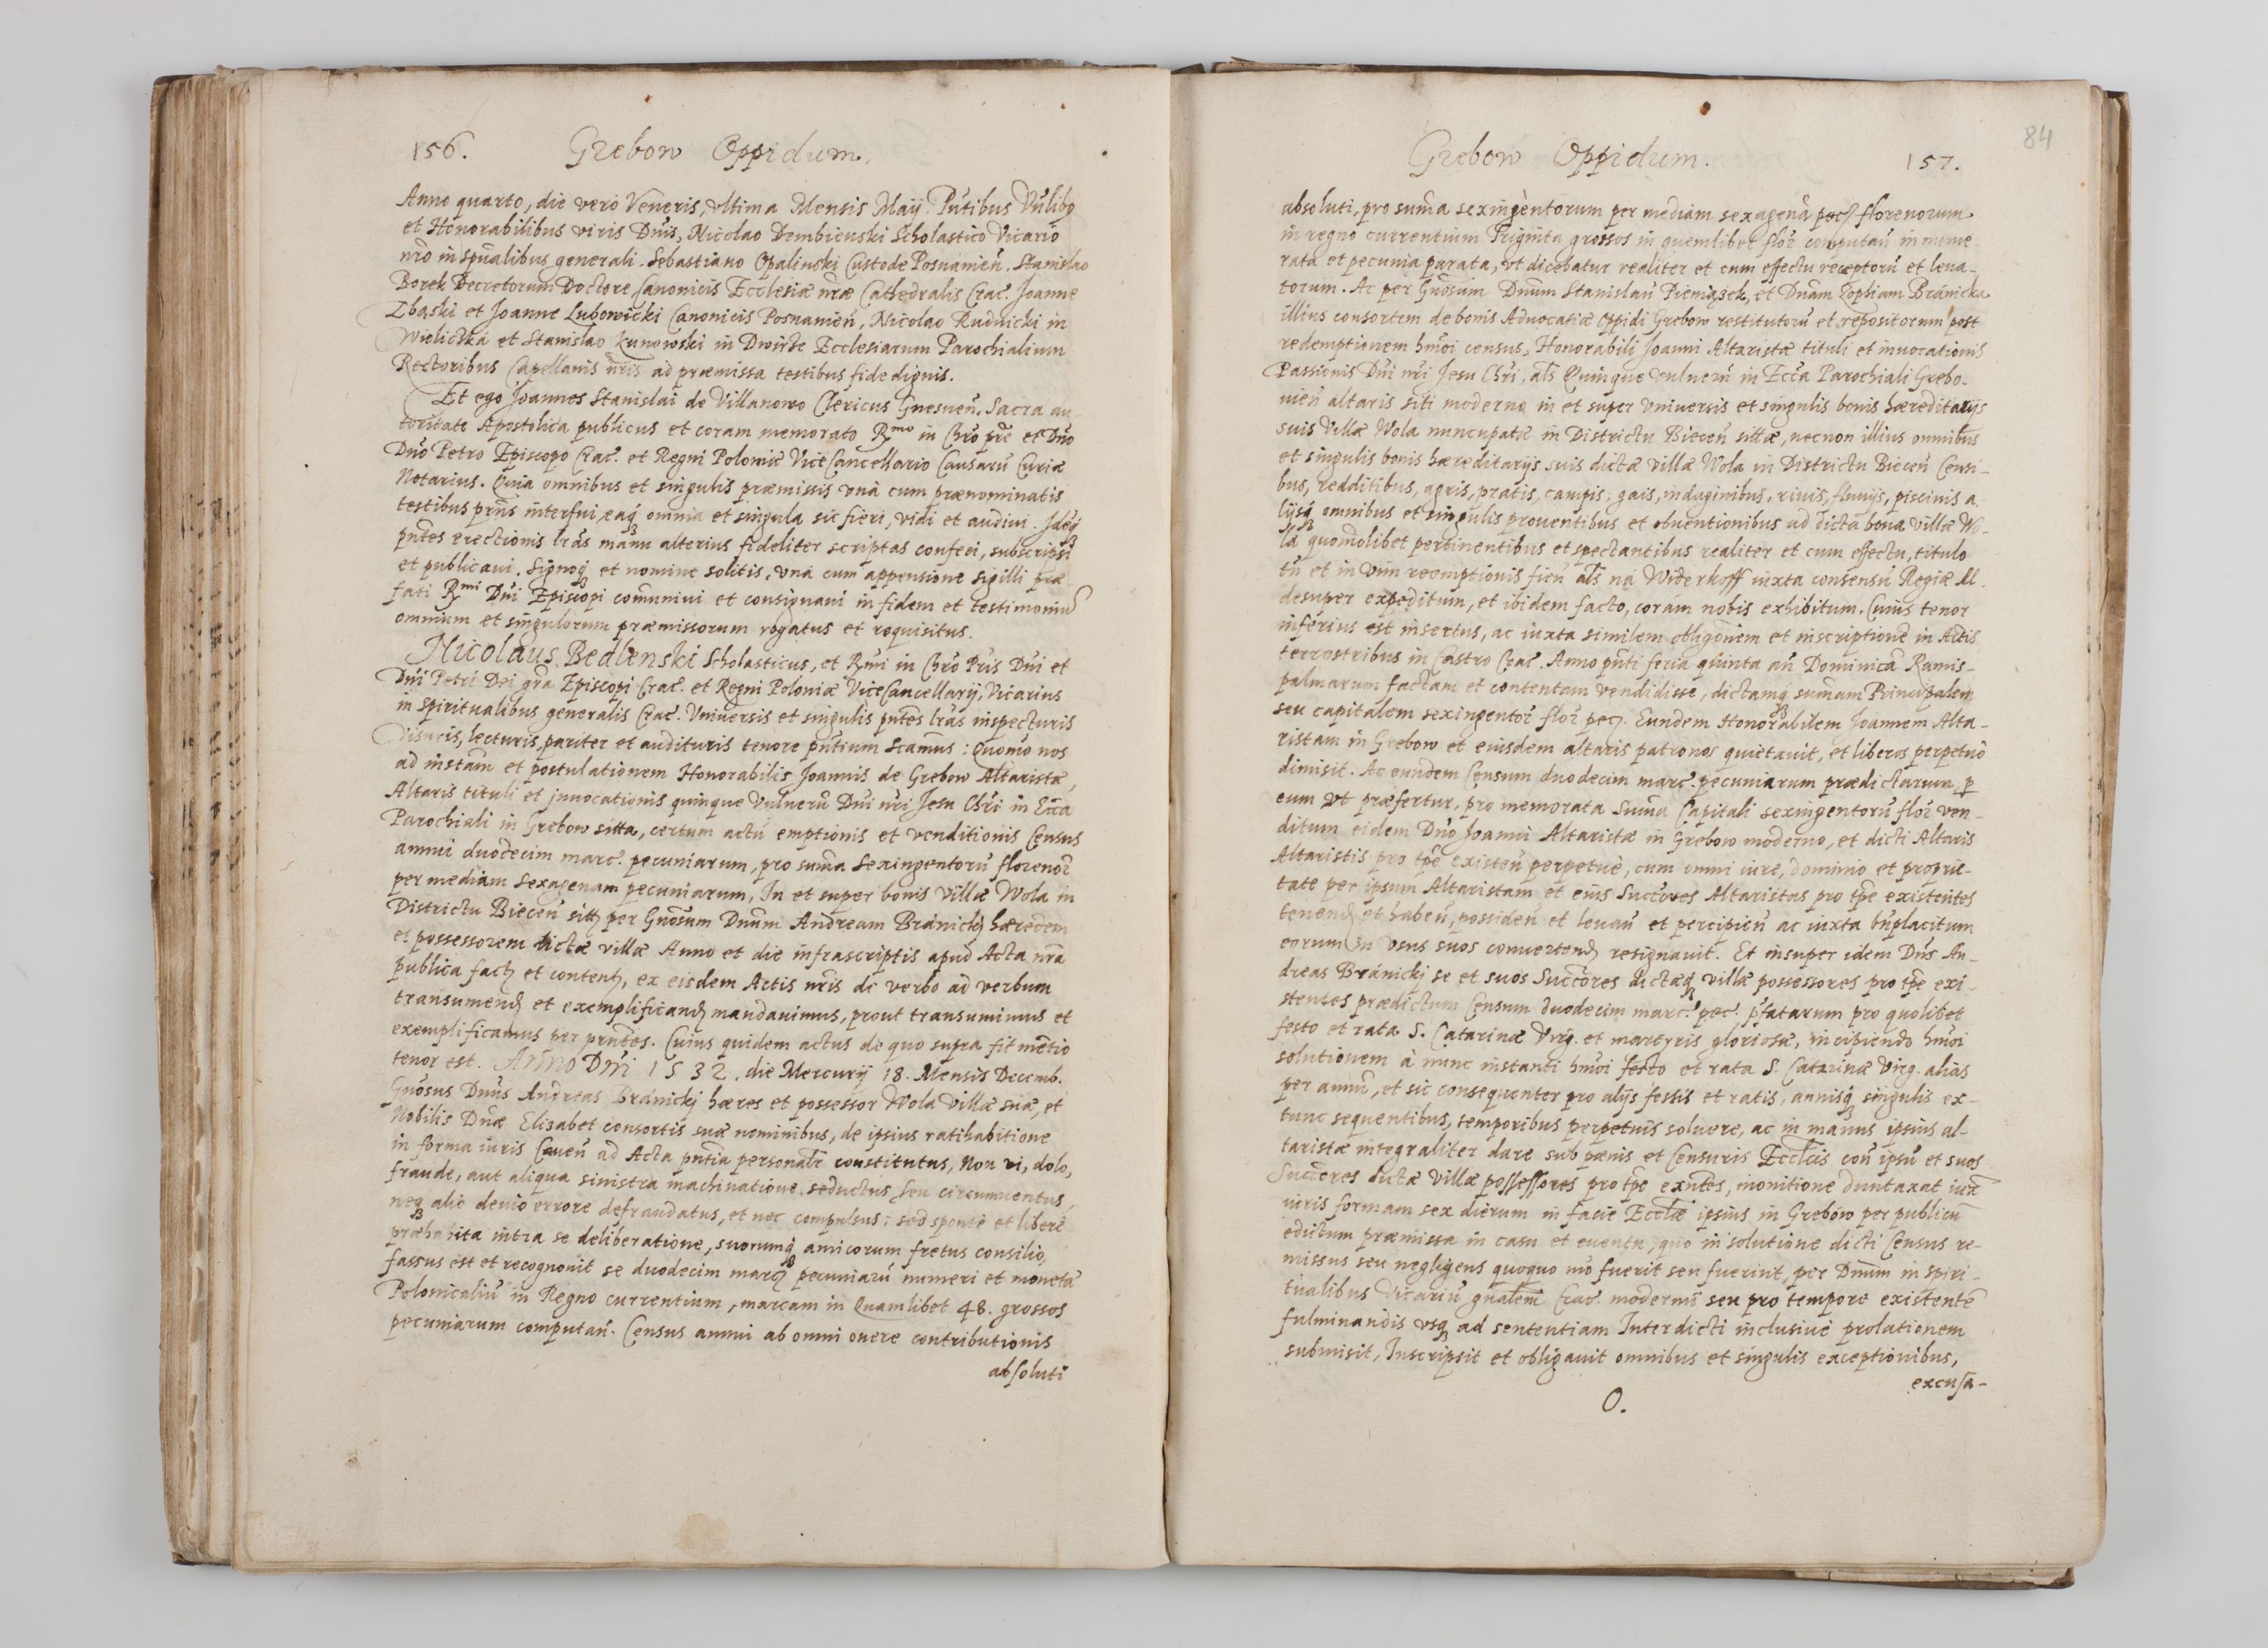 156. Grebow Oppidum.
Anno quarto, die vero Veneris, vltima Mensis Maij. Pntibus Vnlibq
et Honorabilibus viris Dnis, Nicolao Dembienski Scholastico Vicario
nro in spualibus generali. Sebastiano Opalinski Custode Posnanien̄. Stanislao
Borek Decretorum Doctore, Canonicis Ecclesiæ nræ Cathedralis Crac. Joanne
Zbąski et Joanne Lubowicki Canonicis Posnanien̄, Nicolao Rudnicki in
Wielicżka et Stanislao Kunowski in Dwirże Ecclesiarum Parochialium
Rectoribus Capellanis nris ad præmissa testibus fide dignis.
Et ego Joannes Stanislai de Villanowo Clericus Gnesnen̄. Sacra au-
toritate Apostolica publicus et coram memorato Rmo in Chro pre et Dno
Dno Petro Episcopo Crac. et Regni Poloniæ ViceCancellario Causarū Curiæ
Notarius. Quia omnibus et singulis præmissis vnà cum prænominatis
testibus prns interfui, eaq omnia et singula sic fieri, vidi et audiui. Ideq
pntes erectionis lras manu alterius fideliter scriptas confeci, subscripsi
et publicaui. Signoq et nomine solitis, vnà cum appensione sigilli præ
fati Rmi Dni Episcopi communiui et consignaui in fidem et testimoniū
omnium et singulorum præmissorum rogatus et requisitus.
Nicolaus Bedlenski Scholasticus, et Rmi in Chro Pris Dni et
Dni Petri Dei gra Episcopi Crac. et Regni Poloniæ ViceCancellarij, Vicarius
in Spiritualibus generalis Crac. Vniuersis et singulis pntes lras inspecturis
visuris, lecturis, pariter et audituris tenore pntium scamus: Quomo nos
ad instam et postulationem Honorabilis Joannis de Grebow Altaristæ,
Altaris tituli et jnuocationis quinque Vulnerū Dni nri Jesu Chri in Ecca
Parochiali in Grebow sitta, certum actū emptionis et venditionis Census
annui duodecim marc. pecuniarum, pro suma Sexingentorū florenor
per mediam sexagenam pecuniarum, In et super bonis Villæ Wola in
Districtu Biecen̄ sitt per Gnosum Dnum Andream Bránicki hæredem
et possessorem dictæ villæ Anno et die infrascriptis apud Acta nra
publica fact et content, ex eisdem Actis nris de verbo ad verbum
transumend et exemplificand mandauimus, prout transumimus et
exemplificamus per pntes. Cuius quidem actus de quo supra fit mētio
tenor est. Anno Dni 1532, die Mercurij 18. Mensis Decemb.
Gnosus Dnus Andreas Bránickj hæres et possessor Wola villæ suæ, et
Nobilis Dnæ Elizabet consortis suæ nominibus, de ipsius ratihabitione
in forma iuris Cauen̄ ad Acta pntia personalr constitutus, Non vi, dolo,
fraude, aut aliqua sinistra machinatione seductus seu circumuentus,
neq alio deuio errore defraudatus, et nec compulsus: sed sponte et liberè
præhabita intra se deliberatione, suorumq amicorum fretus consilio,
fassus est et recognouit se duodecim marc pecuniarū numeri et monetæ
Polonicaliū in Regno currentium, marcam in Quamlibet 48. grossos
pecuniarum computan̄. Census annui ab omni onere contributionis
absoluti
84
Grebow Oppidum. 157.
absoluti, pro suma sexingèntorum per mediam sexagenā pec florenorum
in regno currentium Triginta grossos in quemlibet flor computan̄ in nume-
rata et pecunia parata, vt dicebatur realiter et cum effectu receptorū et leua-
torum. Ac per Gnosum Dnum Stanislaū Pieniążek, et Dnam Zophiam Bránicka
illius consortem de bonis Aduocatiæ Oppidi Grebow restitutorū et repositorum post
redemptionem hmoi census, Honorabili Joanni Altaristæ tituli et inuocationis
Passionis Dni nri Jesu Chri, als Quinque vulnerū in Ecca Parochiali Grebo-
uien̄ altaris siti moderno in et super vniuersis et singulis bonis hæreditarijs
suis Villæ Wola nuncupatæ in Districtu Biecen̄ sittæ, necnon illius omnibus
et singulis bonis hæreditarijs suis dictæ villæ Wola in Districtu Biecen̄ Censi-
bus, redditibus, agris, pratis, campis, gais, indaginibus, riuis, fluuijs, piscinis a-
lijsq omnibus et singulis prouentibus et obuentionibus ad dicta bona villæ Wo-
la quomolibet pertinentibus et spectantibus realiter et cum effectu, titulo
tn et in vim reemptionis fien̄ als na Widerkoff iuxta consensū Regiæ M.
desuper expeditum, et ibidem facto, coram nobis exhibitum. Cuius tenor
inferius est insertus, ac iuxta similem obligonem et inscriptionē in Actis
terrestribus in Castro Crac. Anno pnti feria quinta an̄ Dominicā Ramis-
palmarum factam et contentam vendidisse, dictamq sumam Principalem
seu capitalem sexingentor flor pec. Eundem Honorabilem Joannem Alta-
ristam in Grebow et eiusdem altaris patronos quietauit, et liberos perpetuò
dimisit. Ac eundem Censum duodecim marc. pecuniarum prædictarum, p
eum vt præfertur, pro memorata Suma Capitali sexingentorū flor ven-
ditum eidem Dno Joanni Altaristæ in Grebow moderno, et dicti Altaris
Altaristis pro tpe existen̄ perpetuè, cum omni iure, dominio et proprie-
tate per ipsum Altaristam et eius Succores Altaristas pro tpe existentes
tenend et haben̄, possiden̄ et leuan̄ et percipien̄ ac iuxta bnplacitum
eorum in vsus suos conuertend resignauit. Et insuper idem Dns An-
dreas Bránickj se et suos Succores dictæq villæ possessores pro tpe exi-
stentes prædictum Censum duodecim marc. pec. pfatarum pro quolibet
festo et rata S. Catarinæ Virg. et martyris gloriosæ, incipiendo hmoi
solutionem à nunc instanti hmoi festo et rata S. Catarinæ Virg. alias
per annū, et sic consequenter pro alijs festis et ratis, annisq singulis ex-
tunc sequentibus, temporibus perpetuis soluere, ac in manus ipsius al-
taristæ integraliter dare sub pœnis et Censuris Ecclcis con̄ ipsū et suos
Succores dictæ Villæ possessores pro tpe exntes, monitione duntaxat iux
iuris formam sex dierum in facie Ecclæ ipsius in Grebow per publicū
edictum præmissa in casu et euentu, quo in solutione dicti Census re-
missus seu negligens quoquo mo fuerit seu fuerint, per Dnum in Spiri-
tualibus Vicariū gnalem Crac. modernū seu pro tempore existentē
fulminandis vsq ad sententiam Interdicti inclusiuè prolationem
submisit, Inscripsit et obligauit omnibus et singulis exceptionibus,
excusa-
O.